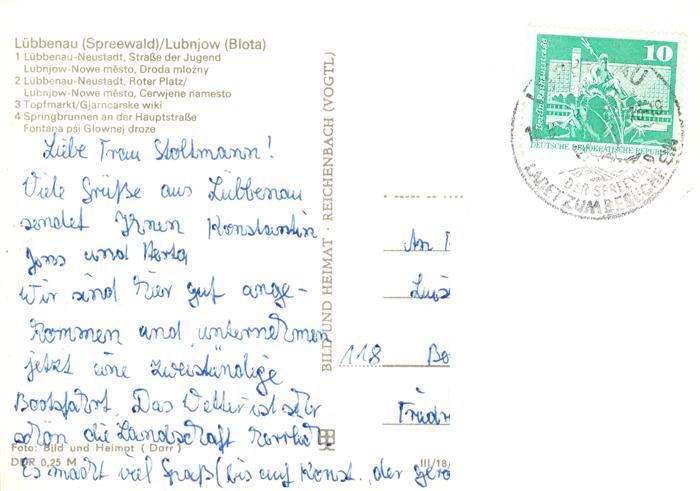 Lübbenau (Spreewald)/Lubnjow (Blota)
1 Lübbenau-Neustadt, Straße der Jugend
Lubnjow-Nowe město, Droda młożny
2 Lübbenau-Neustadt, Roter Platz/
Lubnjow-Nowe město, Cerwjene namesto
3 Topfmarkt/Gjarncarske wiki
4 Springbrunnen an der Hauptstraße
Fontana psi Glownej droze
Liebe Frau Stoltmann!
Viele Grüße aus Lübbenau
sendet Ihnen Konstantin
Jens und Herta
Wir sind hier gut ange-
kommen und unternehmen
jetzt eine zweistündige
Bootsfahrt. Das Wetter ist sehr
schön die Landschaft herrlich.
Es macht viel Spaß (bis auf Konst. der gero
Foto: Bild und Heimat (Darr)
DDR 0,25 M
BILD UND HEIMAT · REICHENBACH (VOGTL)
III/18/
10
Berlin-Rathausstraße
DEUTSCHE DEMOKRATISCHE REPUBLIK
DER SPREEWALD
LADET ZUM BESUCHE EIN
An
Luis
118 Be
Friedr